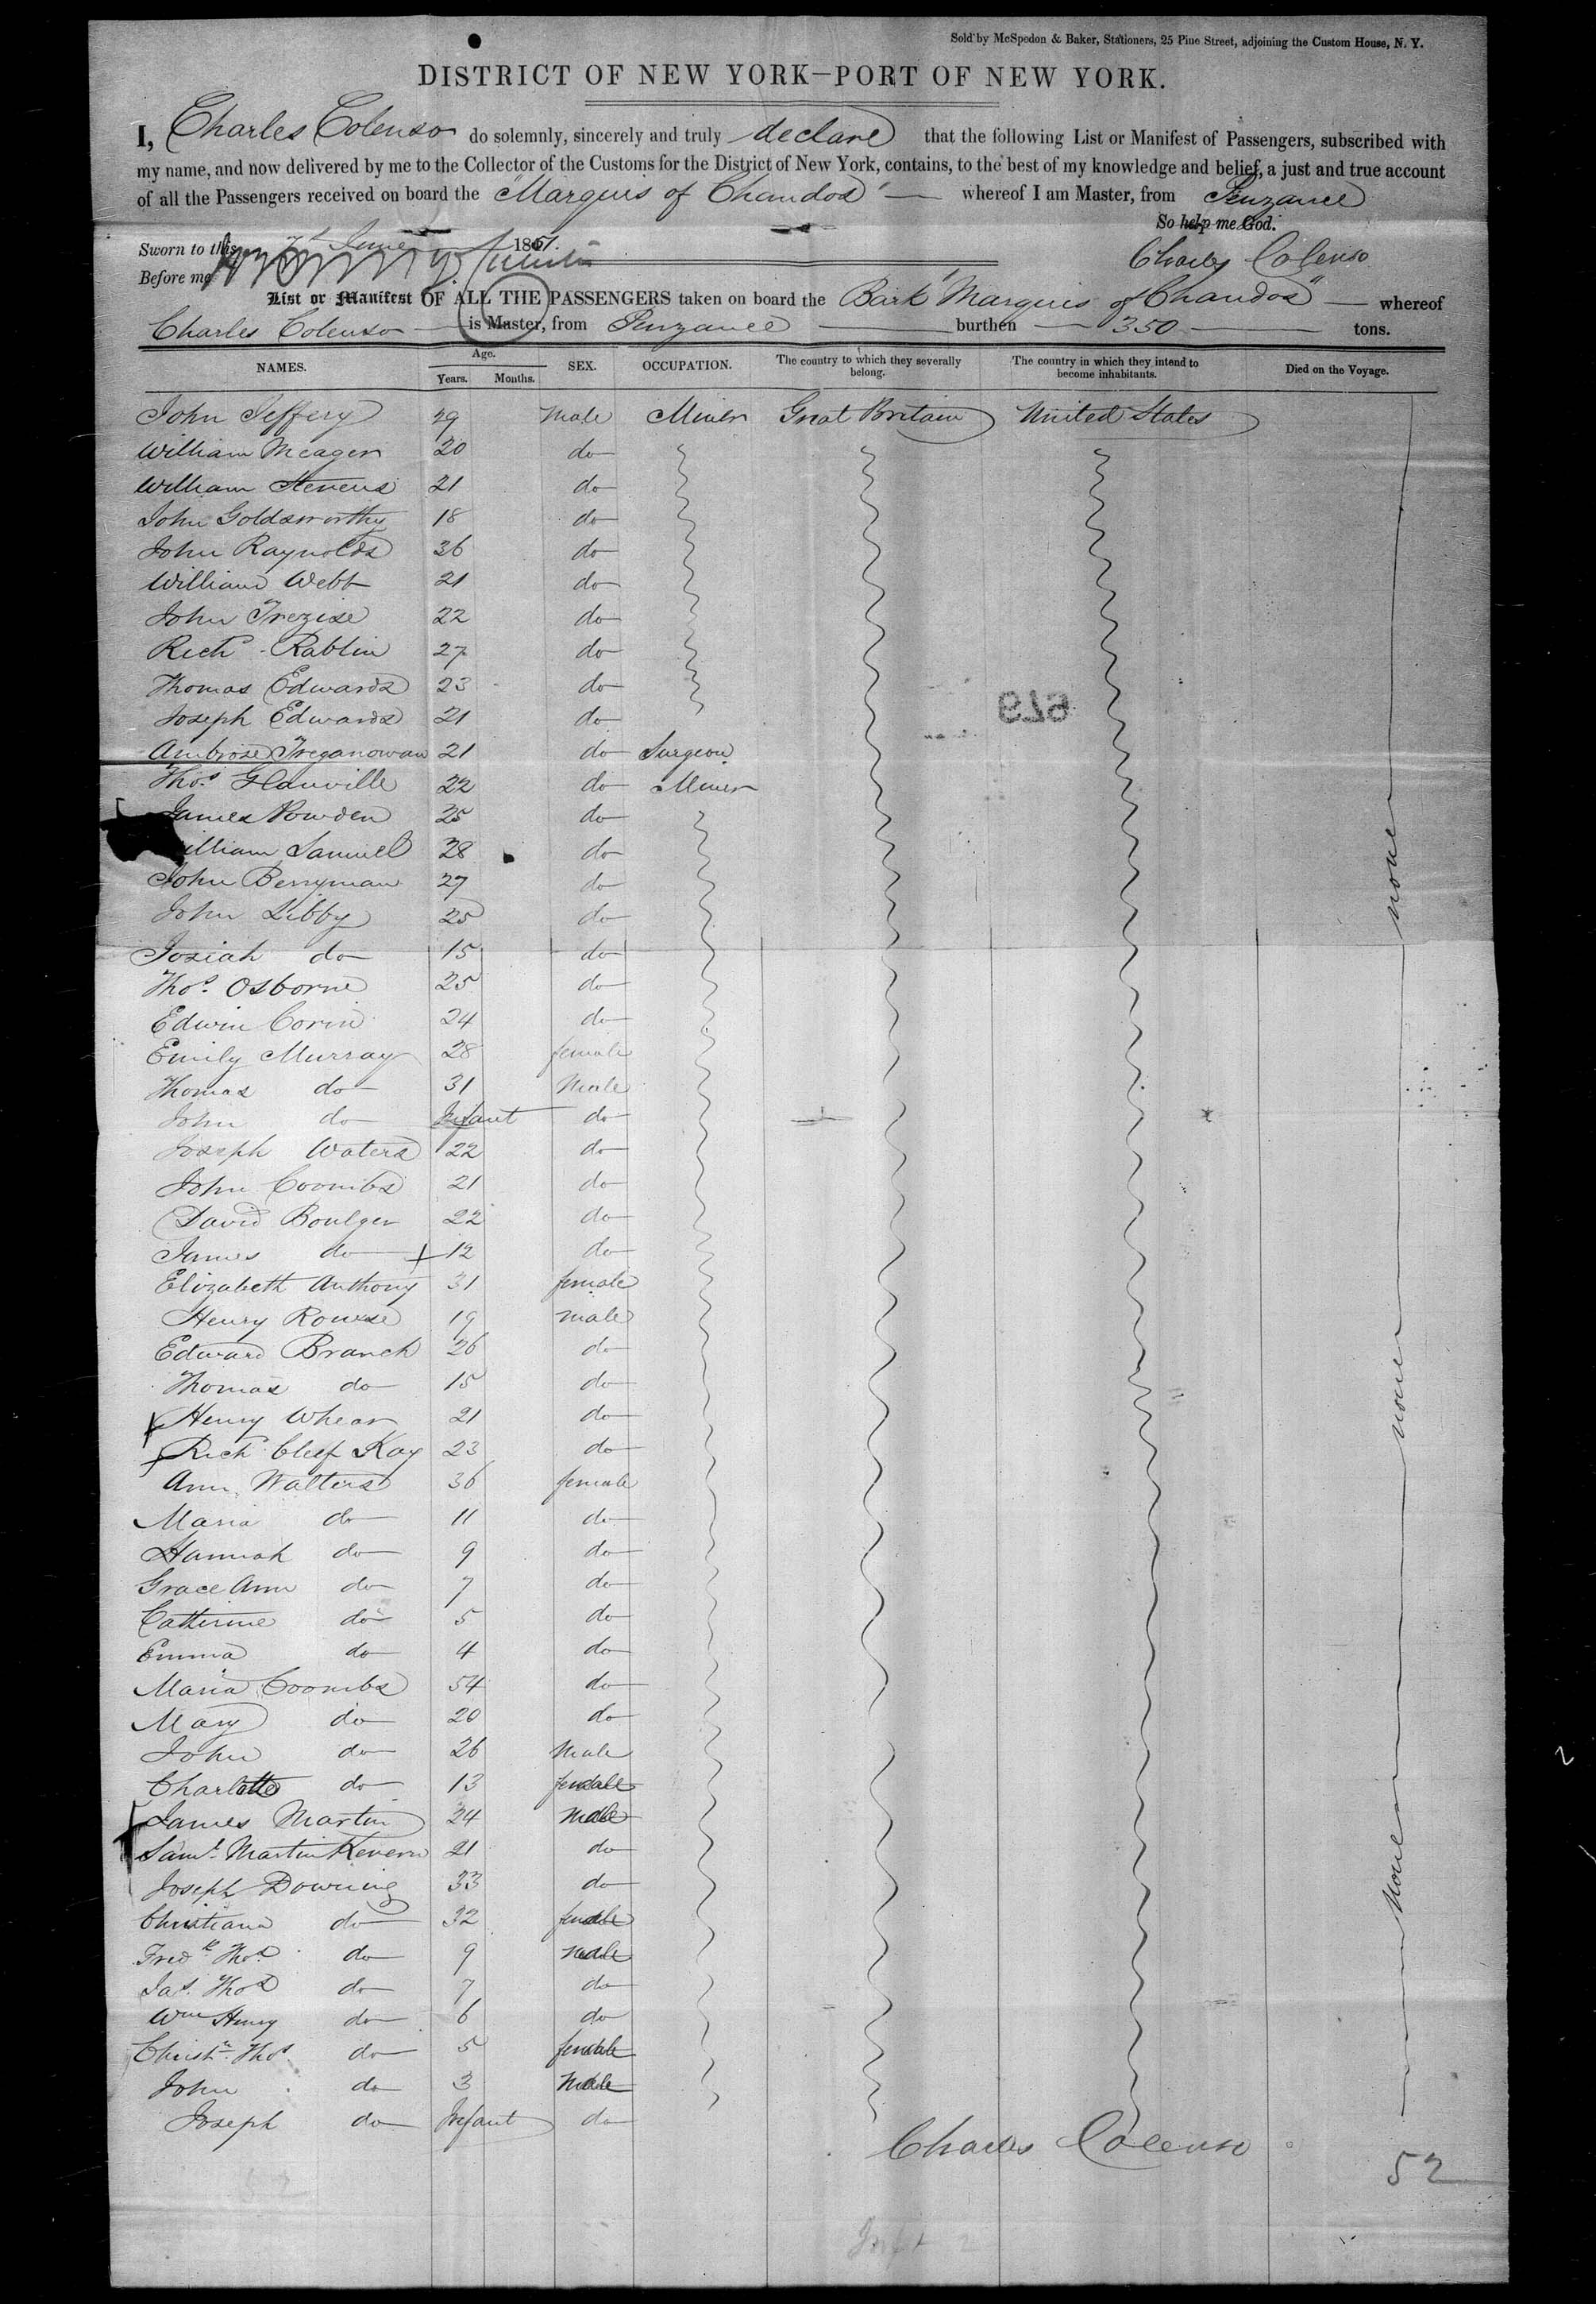 Sold by McSpedon & Baker, Stationers, 25 Pine Street, adjoining the Custom House, N. Y.
DISTRICT OF NEW YORK—PORT OF NEW YORK.
I, Charles Colenso do solemnly, sincerely and truly declare that the following List or Manifest of Passengers, subscribed with
my name, and now delivered by me to the Collector of the Customs for the District of New York, contains, to the best of my knowledge and belief, a just and true account
of all the Passengers received on board the "Marquis of Chandos" whereof I am Master, from Penzance
So help me God.
Sworn to this 7th June 1851.
Charles Colenso
Before me
List or Manifest OF ALL THE PASSENGERS taken on board the Bark "Marquis of Chandos" whereof
Charles Colenso is Master, from Penzance burthen 350 tons.
NAMES. Age. Years. Months. SEX. OCCUPATION. The country to which they severally belong. The country in which they intend to become inhabitants. Died on the Voyage.
John Jeffery 29 Male Miner Great Britain United States
William Meager 20 do
William Stevens 21 do
John Goldsworthy 18 do
John Raynolds 36 do
William Webb 21 do
John Trezise 22 do
Richd Rablin 27 do
Thomas Edwards 23 do
Joseph Edwards 21 do
Ambrose Treganowan 21 do Surgeon
Thos. Glanville 22 do Miner
James Powden 25 do
illiam Samuel 28 do
John Berryman 27 do
John Libby 25 do
Josiah do 15 do
Thos. Osborne 25 do
Edwin Corin 24 do
Emily Murray 28 female
Thomas do 31 Male
John do Infant do
Joseph Waters 22 do
John Coombs 21 do
David Boulger 22 do
James do 12 do
Elizabeth Anthony 31 female
Henry Rowse 19 male
Edward Branch 26 do
Thomas do 15 do
Henry Whear 21 do
Richd Clief Kay 23 do
Ann Walters 36 female
Maria do 11 do
Hannah do 9 do
Grace Ann do 7 do
Catherine do 5 do
Emma do 4 do
Maria Coombs 54 do
Mary do 20 do
John do 26 Male
Charlotte do 13 female
James Martin 24 Male
Saml. Martin Kevern 21 do
Joseph Downing 33 do
Christiana do 32 female
Fredk Thos. do 9 male
Jas. Thos do 7 do
Wm Henry do 6 do
Christn. Thos do 5 female
John do 3 Male
Joseph do Infant do
none
none
none
Charles Colenso
52
Inft 2